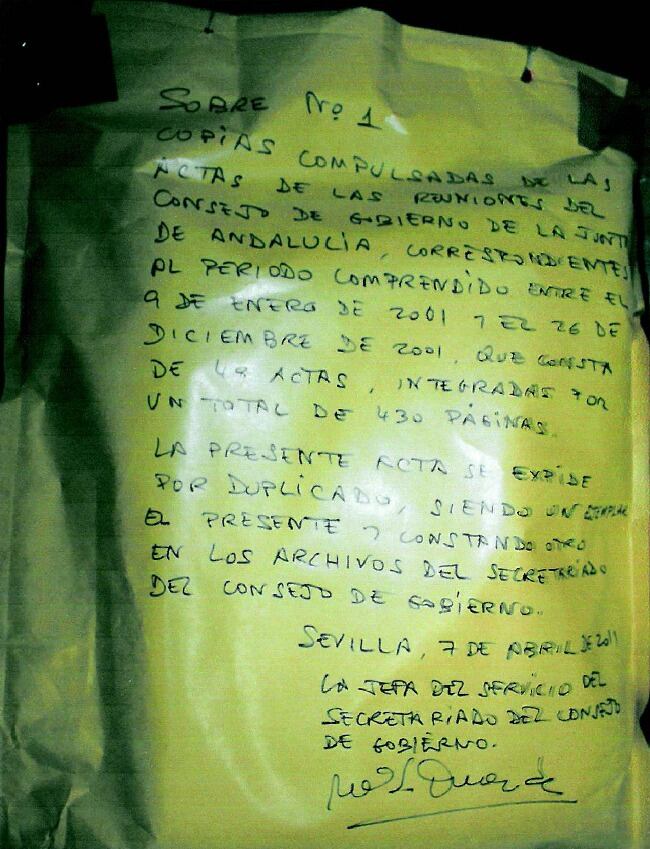 SOBRE Nº 1
COPIAS COMPULSADAS DE LAS
ACTAS DE LAS REUNIONES DEL
CONSEJO DE GOBIERNO DE LA JUNTA
DE ANDALUCIA, CORRESPONDIENTES
AL PERIODO COMPRENDIDO ENTRE EL
9 DE ENERO DE 2001 Y EL 26 DE
DICIEMBRE DE 2001, QUE CONSTA
DE 49 ACTAS, INTEGRADAS POR
UN TOTAL DE 430 PÁGINAS.
LA PRESENTE ACTA SE EXPIDE
POR DUPLICADO, SIENDO UN EJEMPLAR
EL PRESENTE Y CONSTANDO OTRO
EN LOS ARCHIVOS DEL SECRETARIADO
DEL CONSEJO DE GOBIERNO.
SEVILLA, 7 DE ABRIL DE 2011
LA JEFA DEL SERVICIO DEL
SECRETARIADO DEL CONSEJO
DE GOBIERNO.